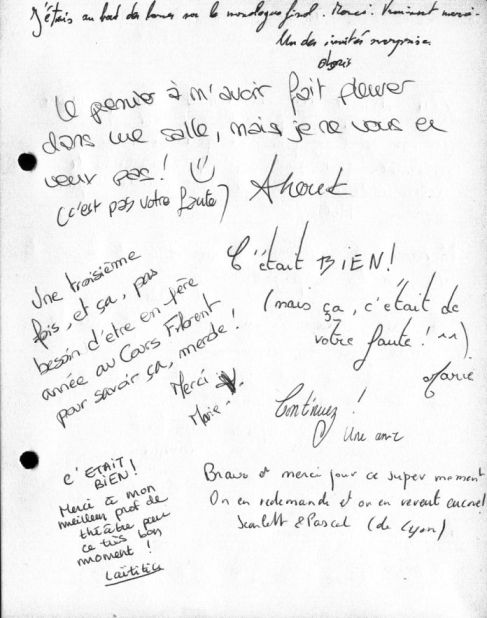 J'étais au bord des larmes sur le monologue final. Merci. Vraiment merci.
Un des invités surprise
Le premier à m'avoir fait pleurer
dans une salle, mais je ne vous en
veux pas! 
(c'est pas votre faute)
C'était BIEN!
(mais ça, c'était de
votre faute! ^^)
Marie
Une troisième
fois, et ça, pas
besoin d'etre en 1ère
année au Cours Florent
pour savoir ça, merde!
Merci
Marie
Continuez!
Une amie
C'ETAIT
BIEN!
Merci à mon
meilleur prof de
théâtre pour
ce très bon
moment!
Laëtitia
Bravo et merci pour ce super moment
On en redemande et on en revient encore!
Scarlett & Pascal (de Lyon)